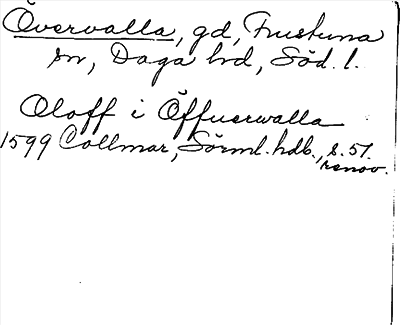 Övervalla, gd, Frustuna
sn, Daga hd, Söd. l.
Oloff i Öffuerwalla
1599 Collmar, Sörml. hdb., s. 57.
renov.